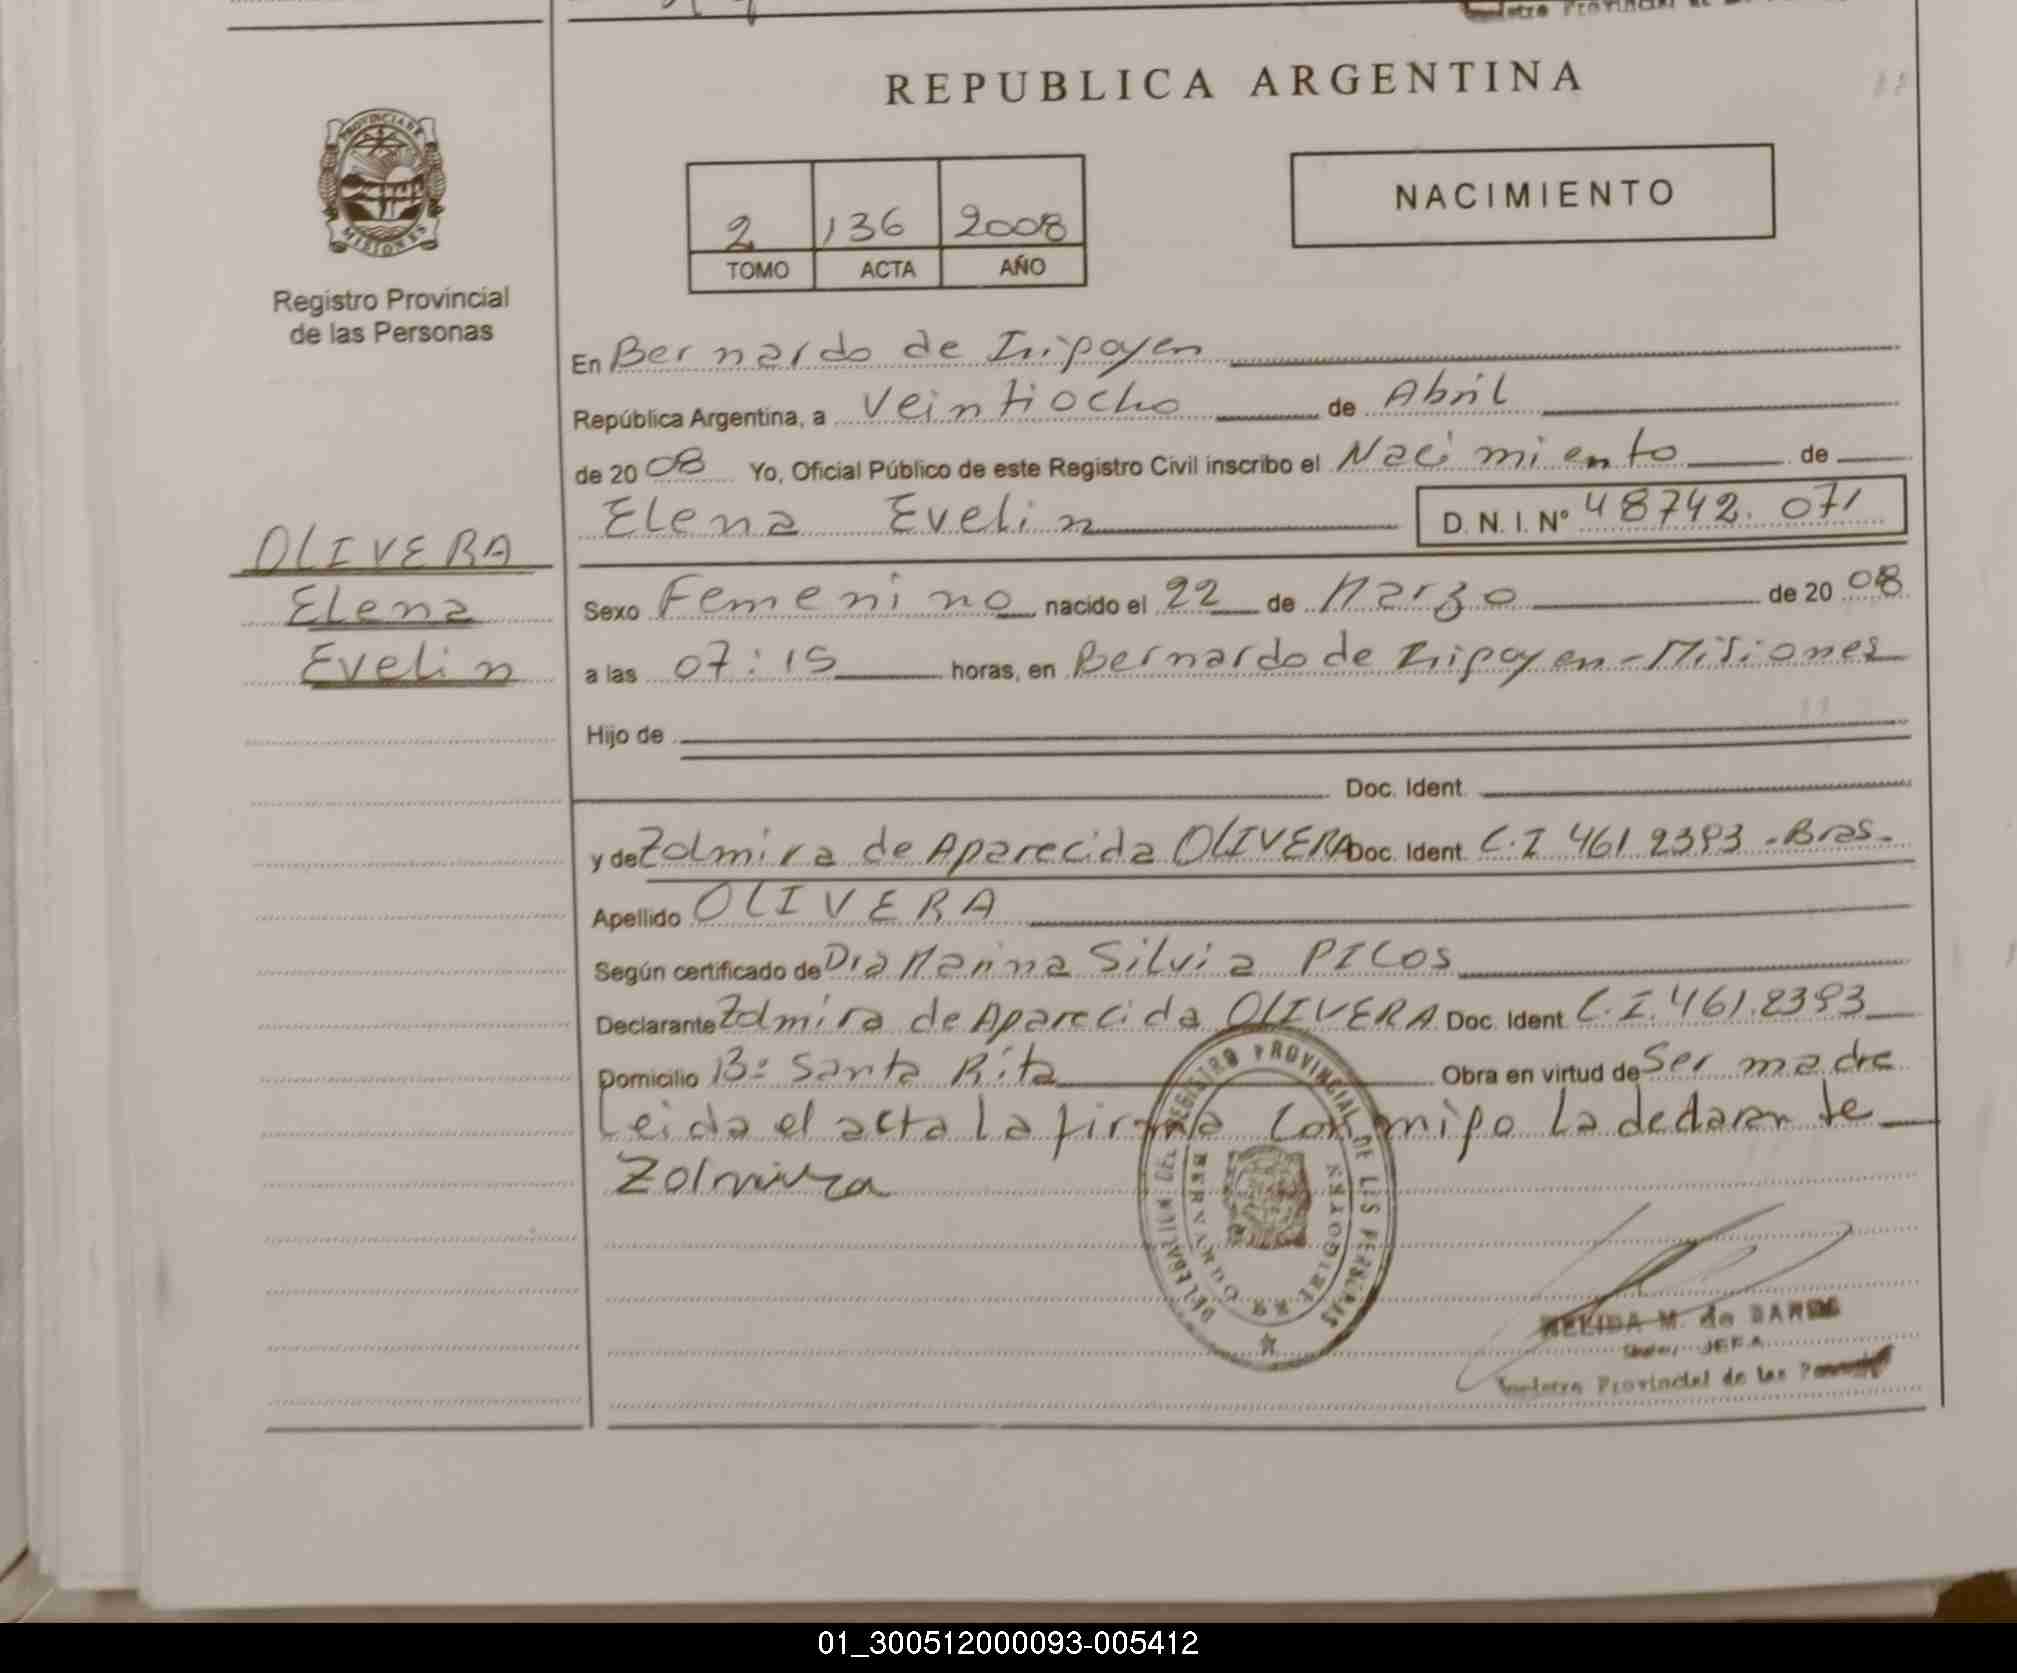 REPUBLICA ARGENTINA
PROVINCIA DE
MISIONES
Registro Provincial
de las Personas
2 136 2008
TOMO ACTA AÑO
NACIMIENTO
En Bernardo de Iripoyen
República Argentina, a Veintiocho de Abril
de 2008 Yo, Oficial Público de este Registro Civil inscribo el Nacimiento de
Elena Evelin D. N. I. Nº 48742.071
OLIVERA
Elena
Evelin
Sexo Femenino nacido el 22 de Marzo de 2008
a las 07:15 horas, en Bernardo de Iripoyen - Misiones
Hijo de
Doc. Ident.
y de Zolmira de Aparecida OLIVERA Doc. Ident. C.I 461 2393 - Bras -
Apellido OLIVERA
Según certificado de Dra Marina Silvia PICOS
Declarante Zolmira de Aparecida OLIVERA Doc. Ident C.I. 461.2393
Domicilio Bº Santa Rita Obra en virtud de Ser madre
Leida el acta la firma conmipo la declarante
Zolmira
REGISTRO PROVINCIAL DE LAS PERSONAS
BERNARDO DE IRIGOYEN
M. de
JEFA
Provincial de las
01_300512000093-005412